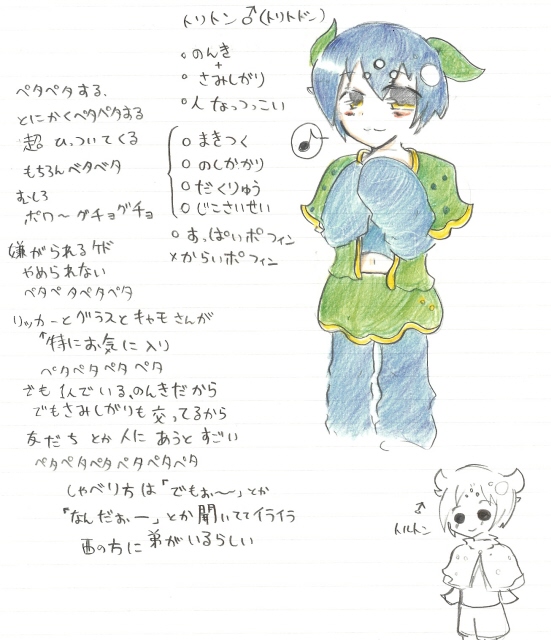 トリトン♂(トリトドン)
○のんき
+
○さみしがり
○人なつっこい
○まきつく
○のしかかり
○だくりゅう
○じこさいせい
○すっぱいポフィン
×からいポフィン
ペタペタする、
とにかくペタペタする
超ひっついてくる
もちろんベタベタ
むしろ
ポワ〜グチョグチョ
嫌がられるケド
やめられない
ベタペタペタベタ
リッカーとグラスとキャモさんが
↑特にお気に入り
ペタペタペタペタ
でも1人でいる、のんきだから
でもさみしがりも交ってるから
友だちとか人にあうとすごい
ペタペタペタペタペタペタ
しゃべり方は「でもぉ〜」とか
「なんだぉー」とか聞いててイライラ
西の方に弟がいるらしい
♂
トルトン